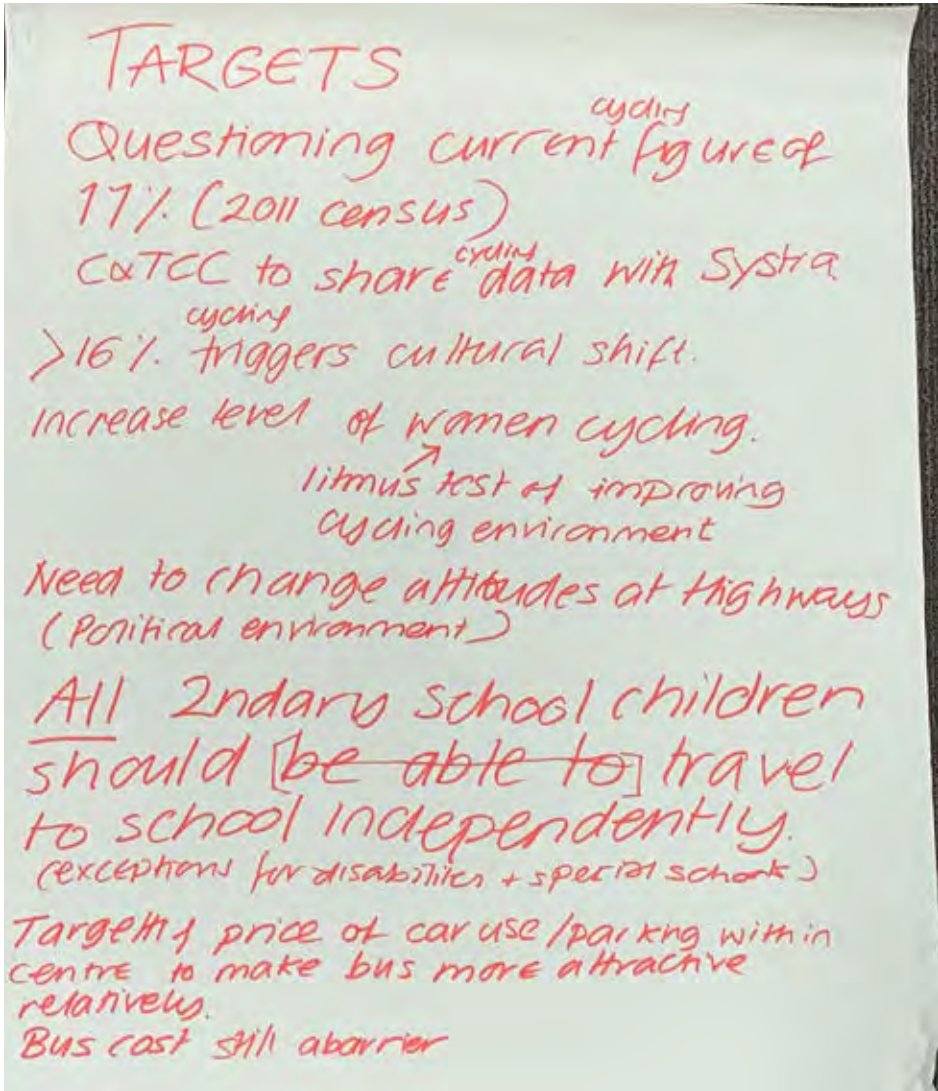 TARGETS
Questioning current cycling figure of
17% (2011 census)
CoTCC to share cycling data with Systra.
>16% cycling triggers cultural shift.
increase level of women cycling.
litmus test of improving
cycling environment
Need to change attitudes at Highways
(Political environment)
All 2ndary school children
should [be able to] travel
to school independently.
(exceptions for disabilities + special schools)
Targetting price of car use/parking within
centre to make bus more attractive
relatively.
Bus cost still a barrier